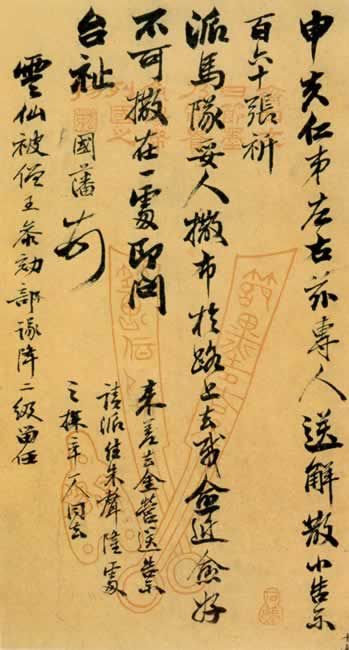 申夫仁弟左右茲專人送解散小告示
百六十張祈
派馬隊妥人撒布於路上去愈近愈好
不可撒在一處即問
台祉 國藩
來差去金營送告示
請派往朱聲隆處
之探卒一人同去
雲仙被僧王參劾部議降二級留任